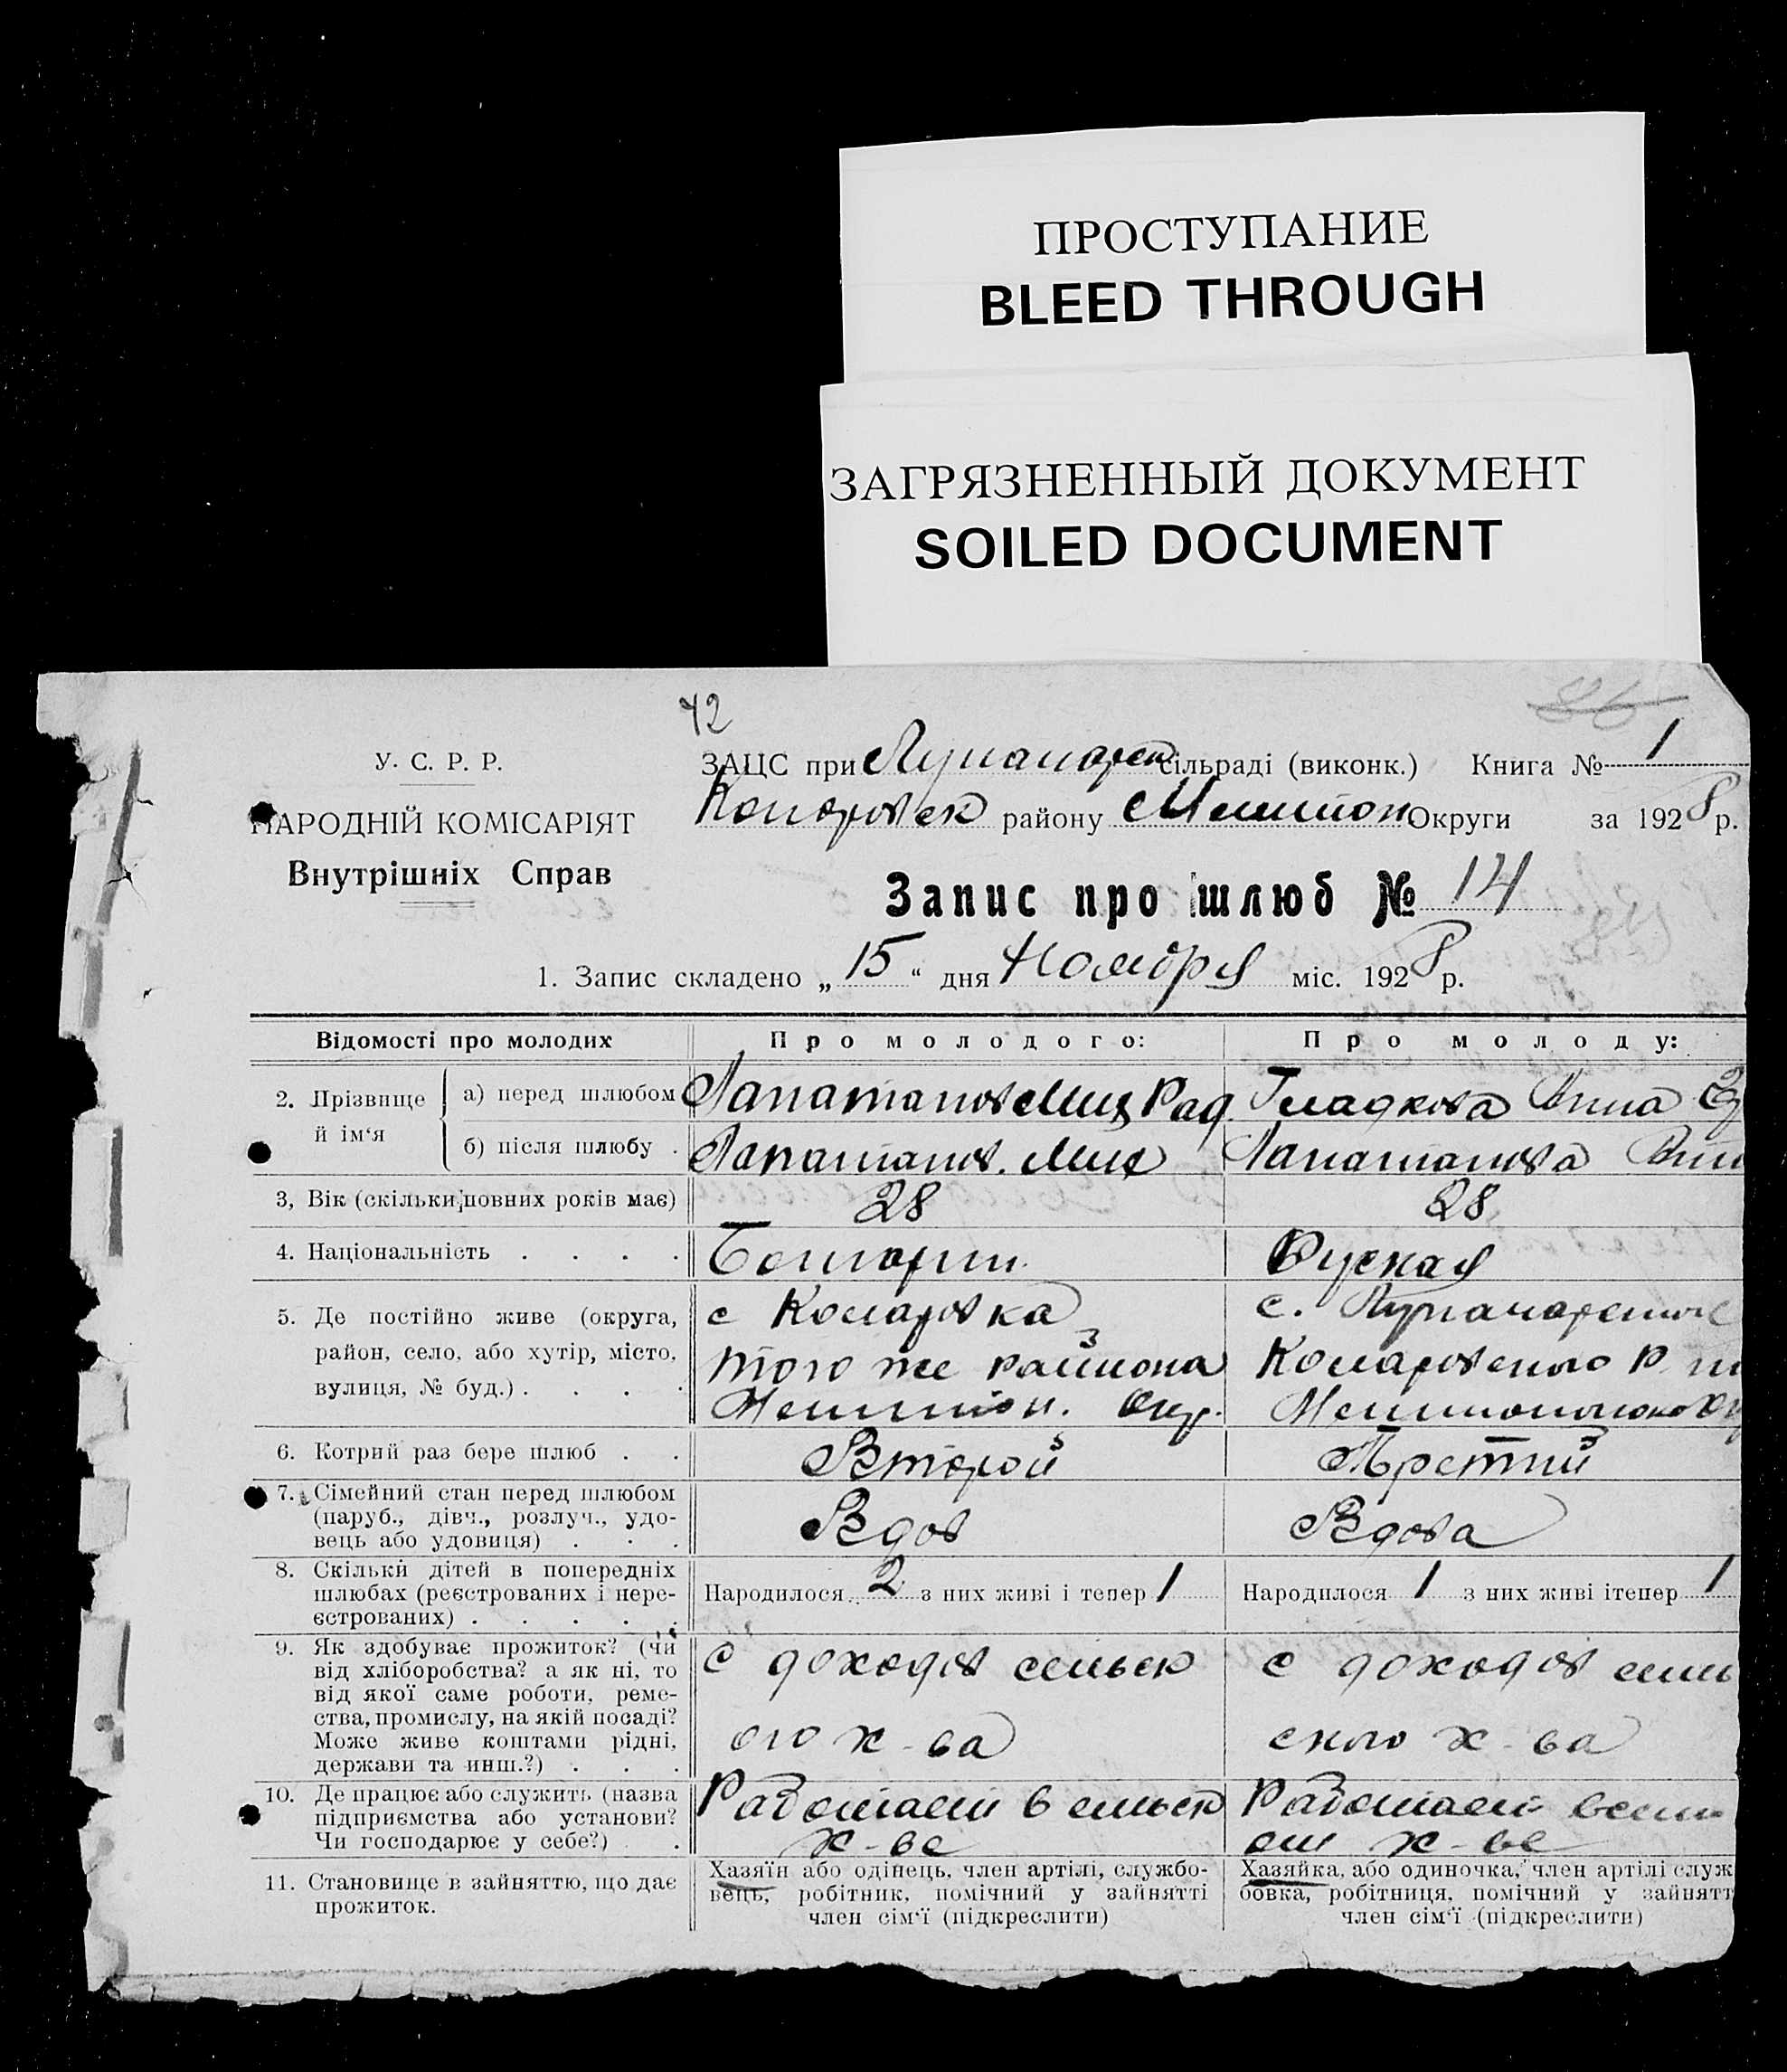 ПРОСТУПАНИЕ
BLEED THROUGH
ЗАГРЯЗНЕННЫЙ ДОКУМЕНТ
SOILED DOCUMENT
42
86
У. С. Р. Р.
НАРОДНІЙ КОМІСАРІЯТ
Внутрішніх Справ
ЗАЦС при сільраді (виконк.) Книга № 1
району Округи за 1928 р.
Запис про шлюб № 14
1. Запис складено „ 15 “ дня Ноября міс. 1928 р.
Відомості про молодих
Про молодого:
Про молоду:
2. Прізвище й ім‘я
а) перед шлюбом
Гладкова Анна
б) після шлюбу .
3, Вік (скільки повних років має)
28
28
4. Національність . . . .
Болгарин
Руская
5. Де постійно живе (округа,
район, село, або хутір, місто,
вулиця, № буд.) . . . .
с Комаровка
того же района
Мелитоп. Окр.
с.
Комаровского р
6. Котрий раз бере шлюб . .
Второй
Третий
7. Сімейний стан перед шлюбом
(паруб., дівч., розлуч., удо-
вець або удовиця) . . .
Вдов
Вдова
8. Скільки дітей в попередніх
шлюбах (реєстрованих і нере-
єстрованих) . . . . .
Народилося 2 з них живі і тепер 1
Народилося 1 з них живі ітепер 1
9. Як здобуває прожиток? (чи
від хліборобства? а як ні, то
від якої саме роботи, реме-
ства, промислу, на якій посаді?
Може живе коштами рідні,
держави та инш.?) . . .
с доходов сельск
ого х-ва
с доходов сель
ского х-ва
10. Де працює або служить (назва
підприємства або установи?
Чи господарює у себе?) . .
Работает в сельск
х-ве
Работает
х-ве
11. Становище в зайняттю, що дає
прожиток.
Хазяїн або одінець, член артілі, службо-
вець, робітник, помічний у зайнятті
член сім‘ї (підкреслити)
Хазяйка, або одиночка, член артілі служ
бовка, робітниця, помічний у зайнятт
член сім‘ї (підкреслити)